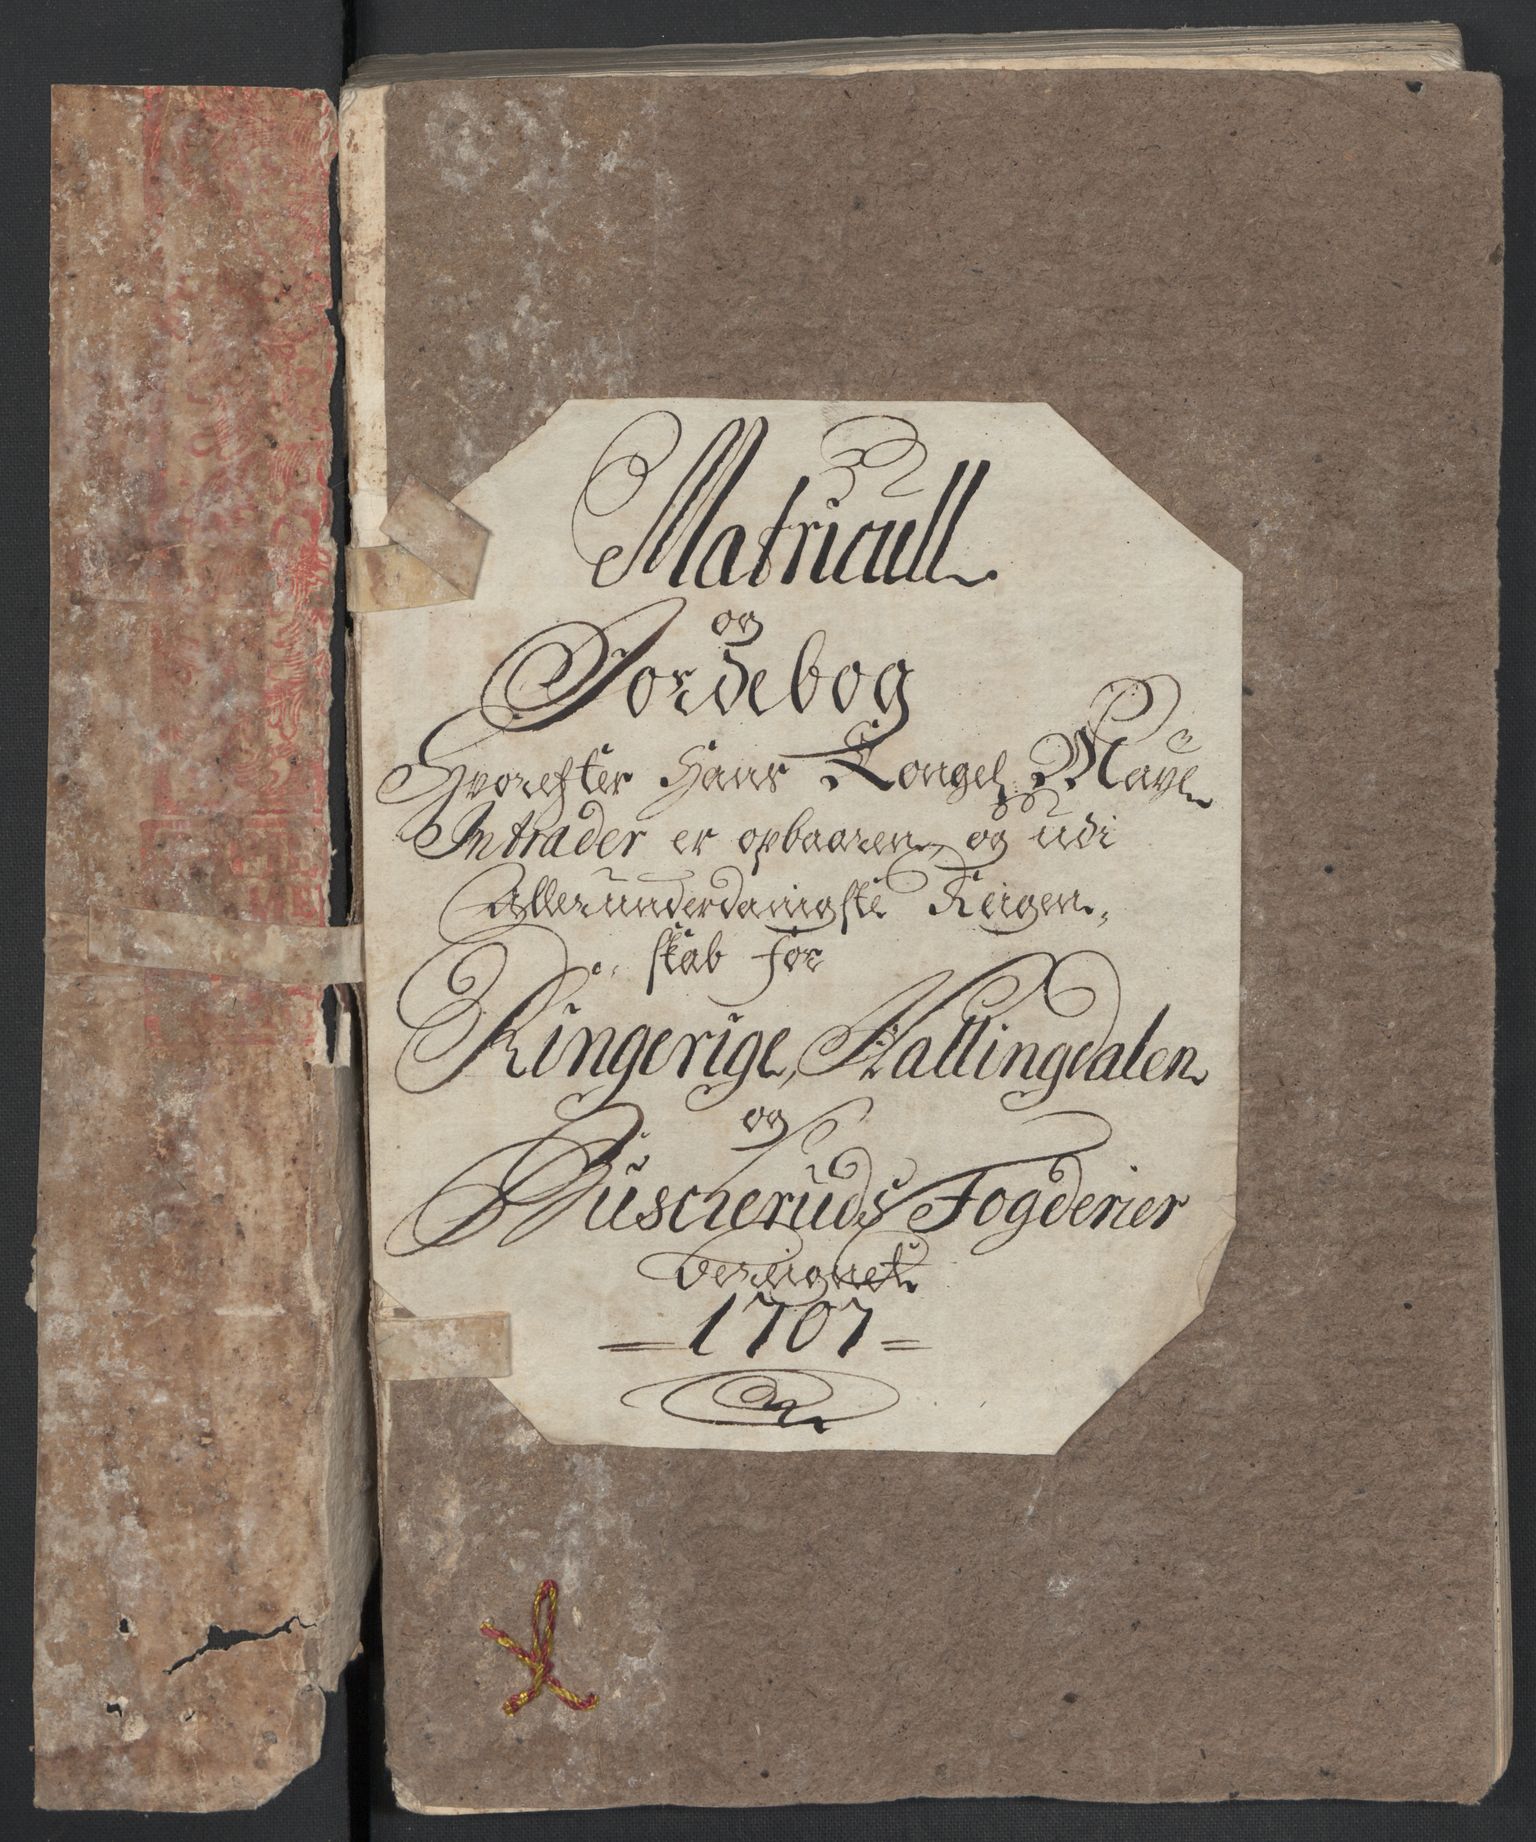 Matricull
og
Jordebog
Hvorefter Hans Kongel. Mayt
Intrader er opbaaren, og udi
Allerunderdanigste Reigen„
„skab for
Ringerige, Hallingdalen
og
Buscheruds Fogderier
bereignet
= 1707 =